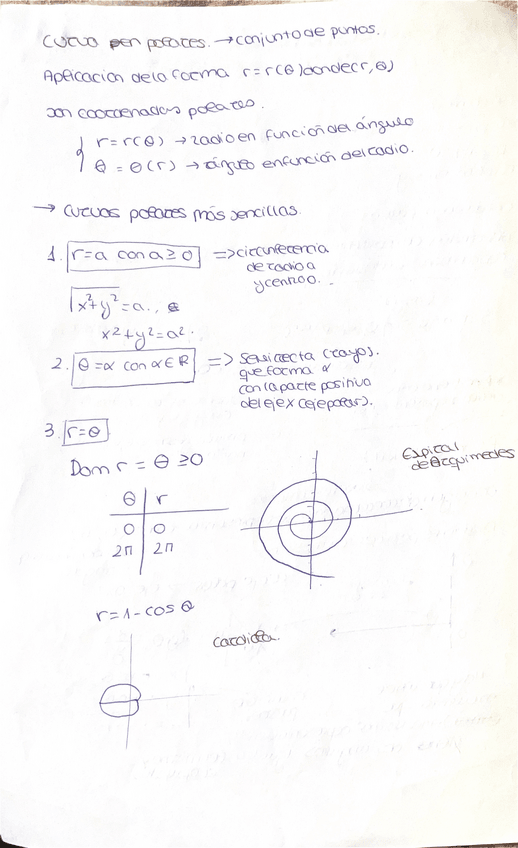 Curva en polares. → conjunto de puntos.
Aplicación de la forma r=r(θ) donde (r,θ)
son coordenadas polares.
{ r = r(θ) → radio en función del ángulo
θ = θ(r) → ángulo en función del radio.
→ curvas polares más sencillas.
1. r=a con a≥0 => circunferencia
de radio a
y centro 0.
√x²+y² = a.
x²+y²=a².
2. θ=α con α∈R => Semirrecta (rayos).
que forma α
con la parte positiva
del eje x (eje polar).
3. r=θ
Dom r = θ ≥0
Espiral
de Arquímedes
θ | r
0 | 0
2π | 2π
r=1-cos θ
Cardioide.